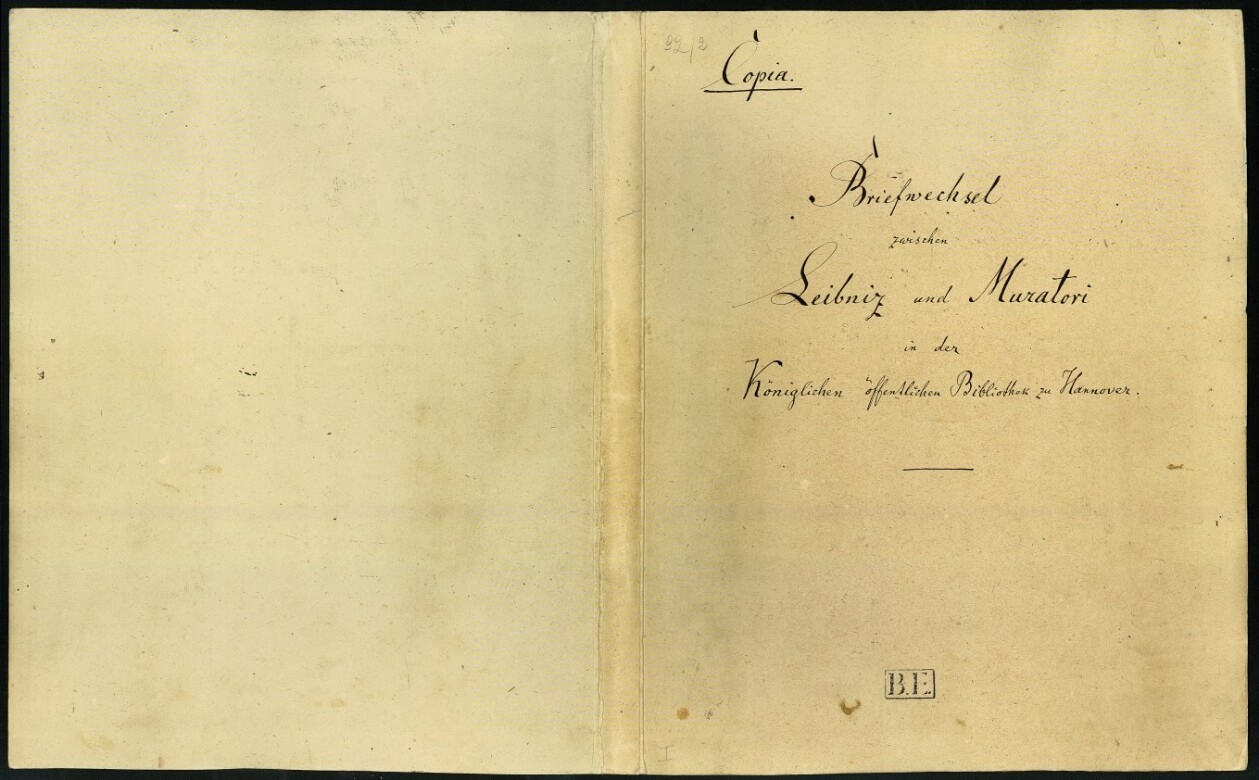 92/2
Copia.
Briefwechsel
zwischen
Leibniz und Muratori
in der
Königlichen öffentlichen Bibliothek zu Hannover.
B.E.
I